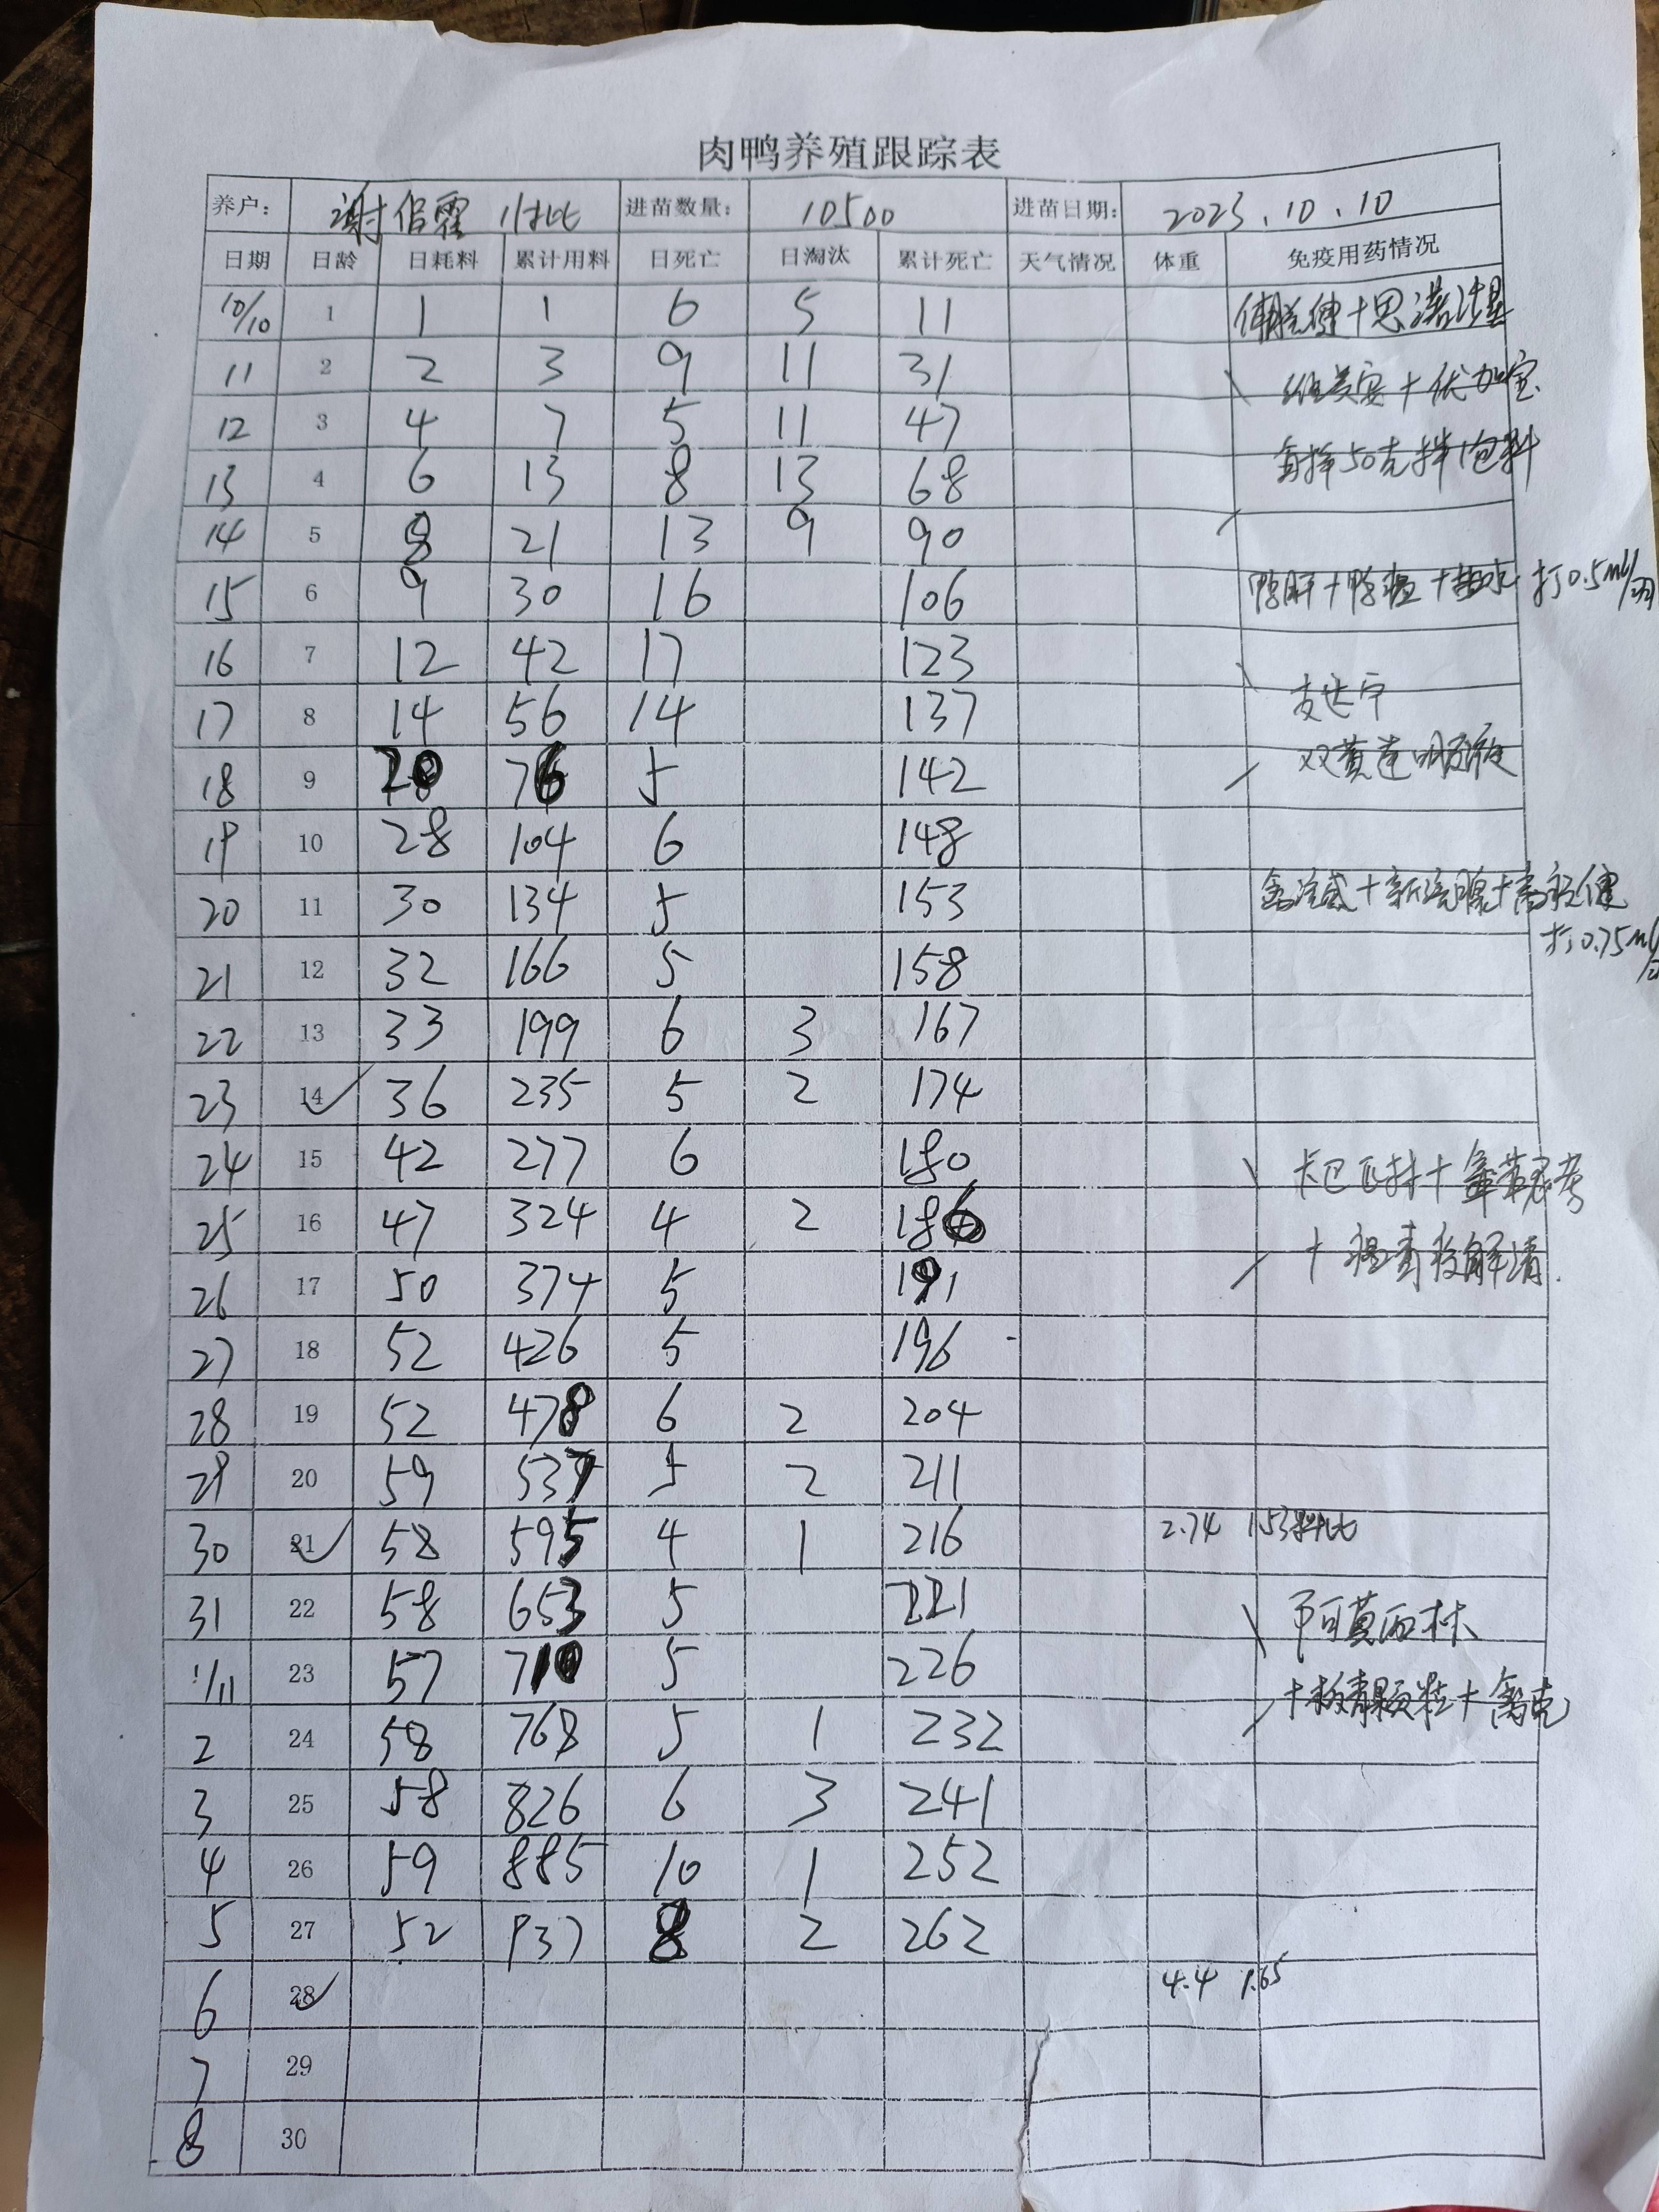 肉鸭养殖跟踪表
养户： 谢 霍 进苗数量： 10500 进苗日期： 2023.10.10
日期 日龄 日耗料 累计用料 日死亡 日淘汰 累计死亡 天气情况 体重 免疫用药情况
10/10 1 1 1 6 5 11
11 2 2 3 9 11 31 优加宝
12 3 4 7 5 11 47
13 4 6 13 8 13 68 每择50克拌1包料
14 5 8 21 13 9 90
15 6 9 30 16 106 鸭肝+鸭瘟+ 打0.5ml/羽
16 7 12 42 17 123
17 8 14 56 14 137 支达宁
18 9 20 76 5 142 双黄连口服液
19 10 28 104 6 148
20 11 30 134 5 153 禽流感+新流腺+
打0.75ml/
21 12 32 166 5 158
22 13 33 199 6 3 167
23 14 36 235 5 2 174
24 15 42 277 6 180 卡巴匹林+
25 16 47 324 4 2 186
26 17 50 374 5 191 +瘟毒 解清.
27 18 52 426 5 196
28 19 52 478 6 2 204
29 20 59 537 5 2 211
30 21 58 595 4 1 216 2.74 1.53料比
31 22 58 653 5 221 阿莫西林
1/11 23 57 710 5 226
2 24 58 768 5 1 232 +板青颗粒+禽克
3 25 58 826 6 3 241
4 26 59 885 10 1 252
5 27 52 937 8 2 262
6 28 4.4 1.65
7 29
8 30